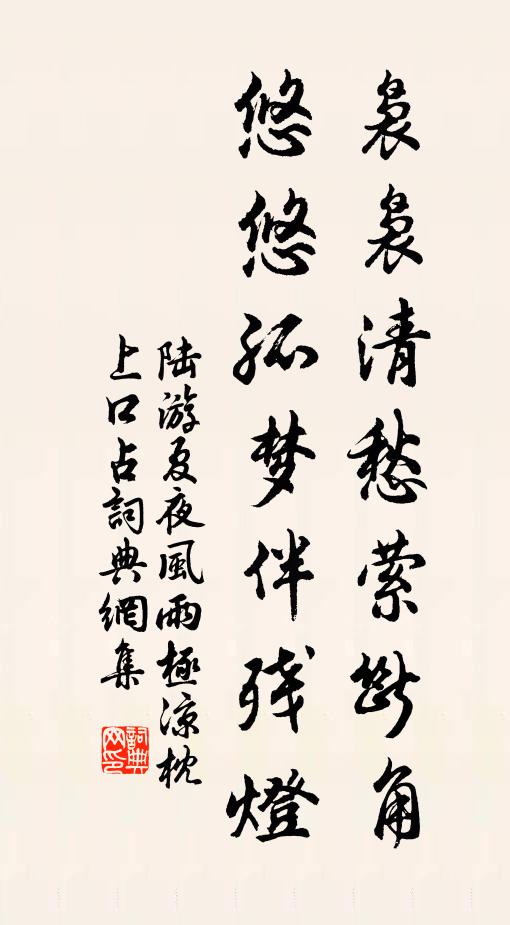 袅袅清愁萦断角
悠悠孤梦伴残燈
陆游夏夜風雨極凉枕
上口占詞典網集
詞典网印